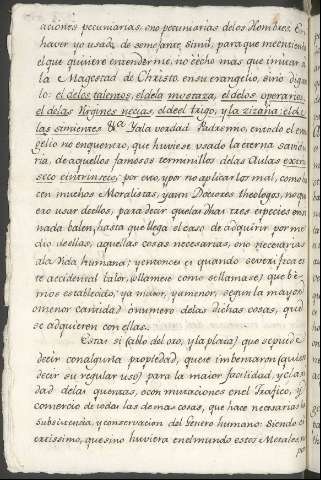 aciones pecuniarias, ono pecuniarias delos Hombres. En
haver yo usado de semejante simil, para que me entienda
el que quiere entenderme, no é echo mas que imitar a
la Magestad de Christo en su evangelio, sino digalo
lo: el delos talentos, el dela mostaza, el delos operarios,
el delas Virgines necias, el deel trigo, y la zizaña; el de
las simientes &a. Y ala verdad Padre mio, en todo el evan
gelio no encuentro, que huviese usado la eterna sabidu
ria, de aquellos famosos terminillos delas Aulas extrin
seco e intrinseco; por esto, y por no aplicarlos mal, como ha
cen muchos Moralistas, y aun Doctores theologos, no qui
ero usar de ellos, para decir que las dhas tres especies en si
nada valen, hasta que llega el caso de adquirir por me
dio de ellas, aquellas cosas necesarias, ono necesarias
ala vida humana; y entonces es quando se verifica es
te accidental valor, (ó llamese como se llamase) que he
mos establecido, ya maior, ya menor, segun la mayor
o menor cantidad ó numero delas dichas cosas, que
se adquieren con ellas.
Estas si (ablo del oro, y la plata) que se puede
decir con alguna propiedad, que se imbentaron (quiero
decir su regular uso) para la maior facilidad, y clari
dad delas quentas, o con mutaciones en el Trafico, y
comercio de todas las demas cosas, que hace necesarias la
subsistencia, y conservacion del Genero humano: Siendo ci
ertissimo, que si no huviera en el mundo estos Metales, no